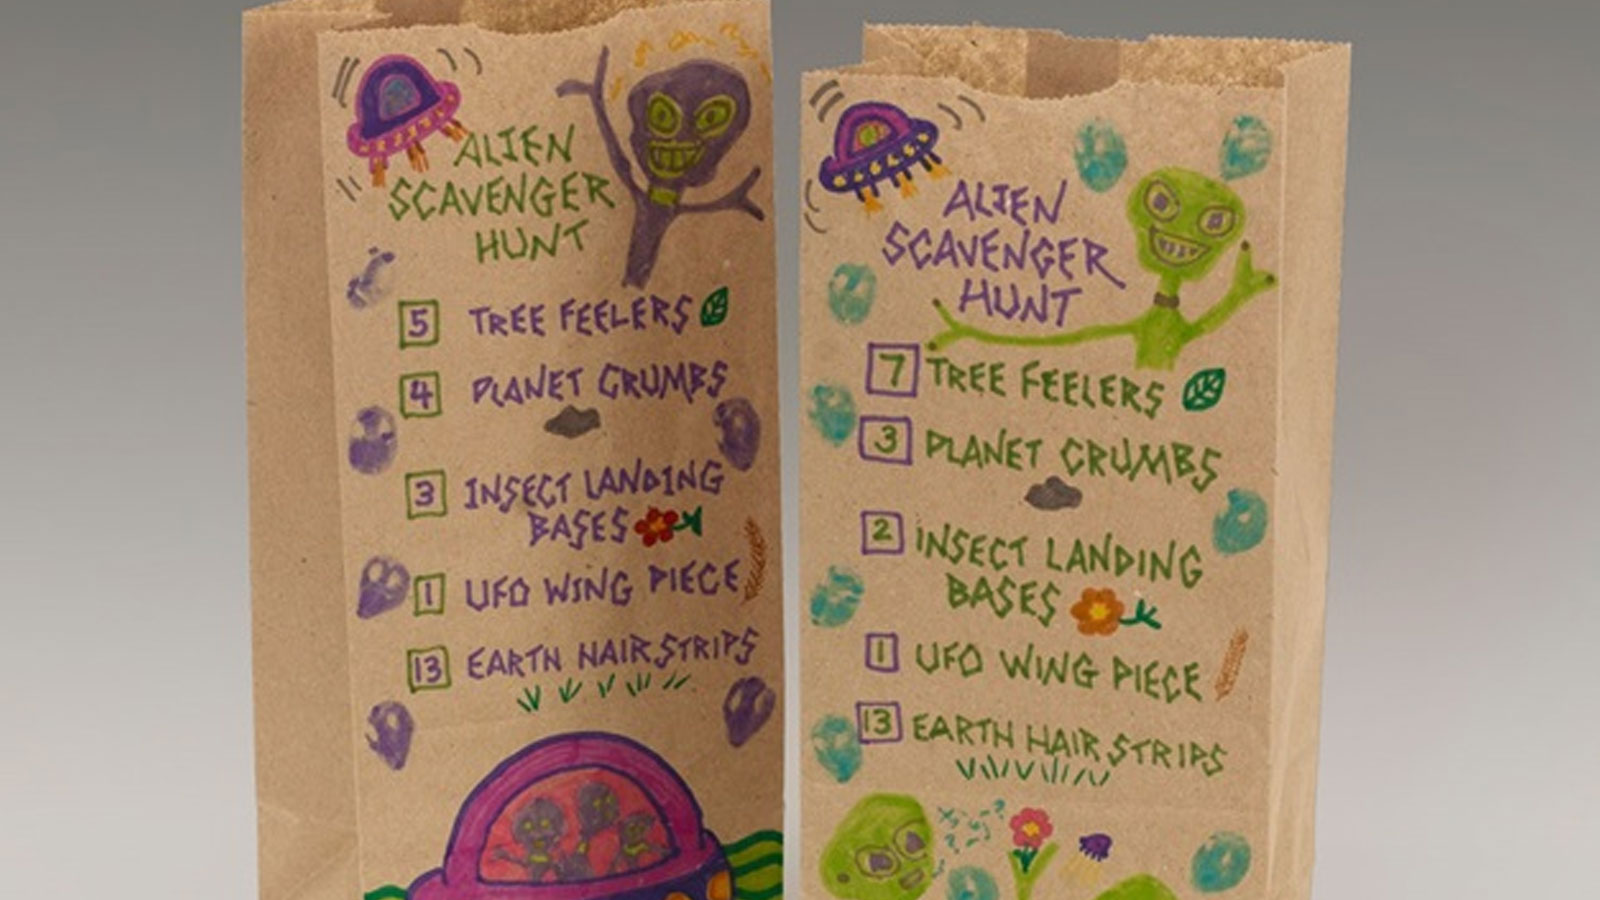 ALIEN
SCAVENGER
HUNT
5 TREE FEELERS
4 PLANET CRUMBS
3 INSECT LANDING
BASES
1 UFO WING PIECE
13 EARTH HAIR STRIPS
ALIEN
SCAVENGER
HUNT
7 TREE FEELERS
3 PLANET CRUMBS
2 INSECT LANDING
BASES
1 UFO WING PIECE
13 EARTH HAIR STRIPS